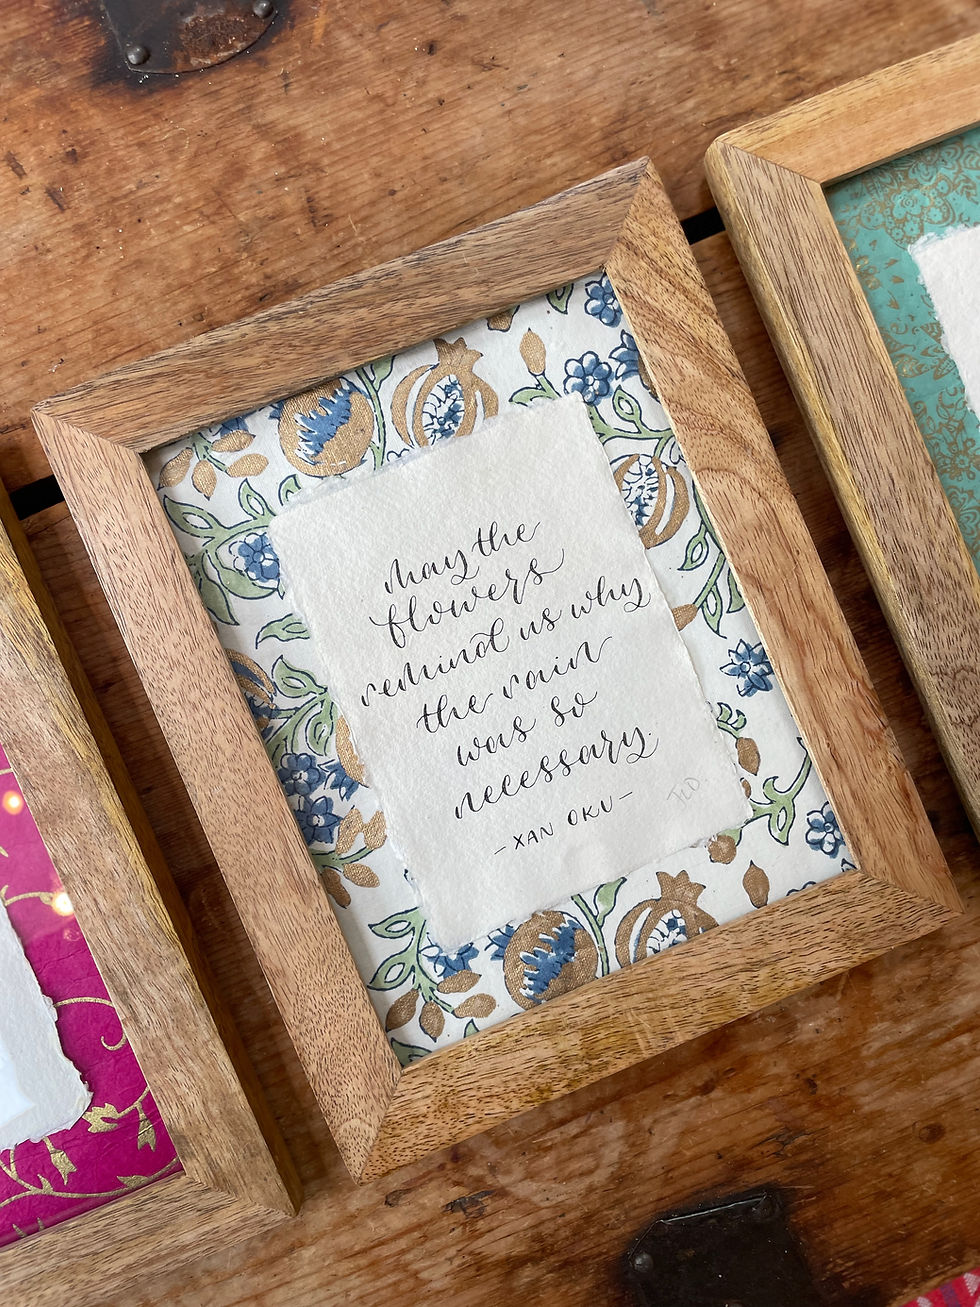 may the
flowers
remind us why
the rain
was so
necessary.
- XAN OKU -
TLD